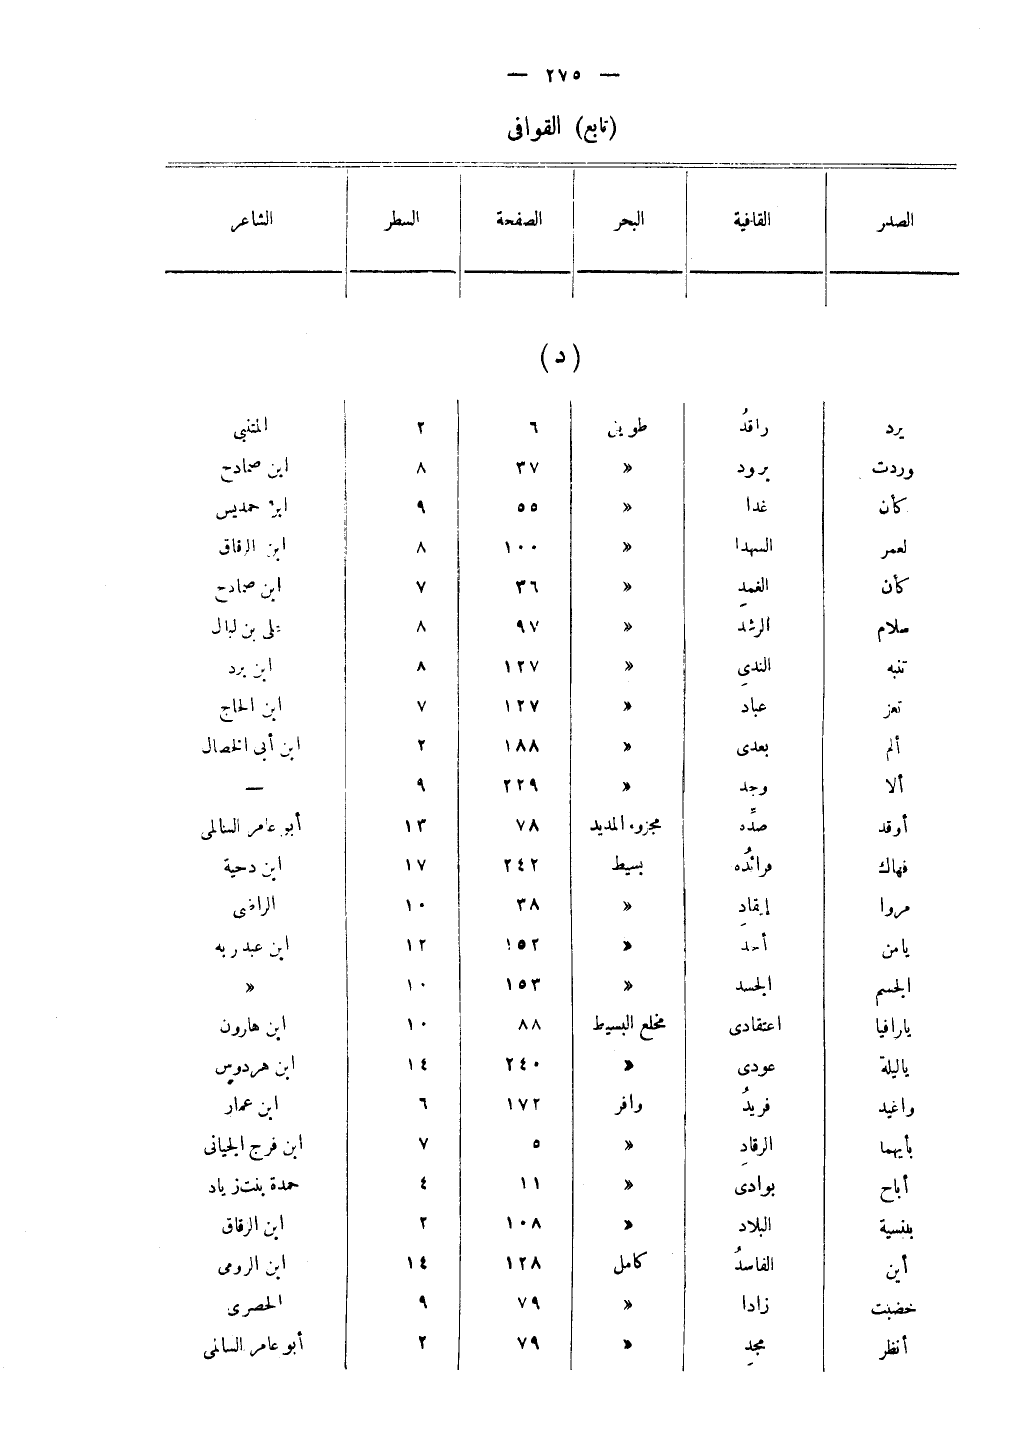 — ٢٧٥ —
(تابع) القوافى
الصدر القافية البحر الصفحة السطر الشاعر
(د)
يرد راقدُ طويل ٦ ٢ المتنبى
وردت برود » ٣٧ ٨ ابن صمادح
كأن غدا » ٥٥ ٩ ابن حمديس
لعمر السهدا » ١٠٠ ٨ ابن الزقاق
كأن الغمدِ » ٣٦ ٧ ابن صمادح
سلام الرشد » ٩٧ ٨ على بن لبال
تنبه الندىِ » ١٢٧ ٨ ابن برد
تعز عباد » ١٢٧ ٧ ابن الحاج
ألم بعدى » ١٨٨ ٢ ابن أبى الخصال
ألا وجد » ٢٢٩ ٩ —
أوقد صدِّه مجزوء المديد ٧٨ ١٣ أبو عامر السالمى
فهاك فرائدُه بسيط ٢٤٢ ١٧ ابن دحية
مروا إيقادِ » ٣٨ ١٠ الراضى
يامن أحد » ١٥٢ ١٢ ابن عبد ربه
الجسم الجسد » ١٥٣ ١٠ »
يارافيا اعتقادى مخلع البسيط ٨٨ ١٠ ابن هارون
ياليلة عودى » ٢٤٠ ١٤ ابن هردوس
واغيد فريدُ وافر ١٧٢ ٦ ابن عمار
بأيهما الرقادِ » ٥ ٧ ابن فرج الجيانى
أباح بوادى » ١١ ٤ حمدة بنت زياد
بلنسية البلاد » ١٠٨ ٢ ابن الزقاق
أين الفاسدُ كامل ١٢٨ ١٤ ابن الرومى
خضبت زادا » ٧٩ ٩ الحصرى
أنظر مجدِ » ٧٩ ٢ أبو عامر السالمى